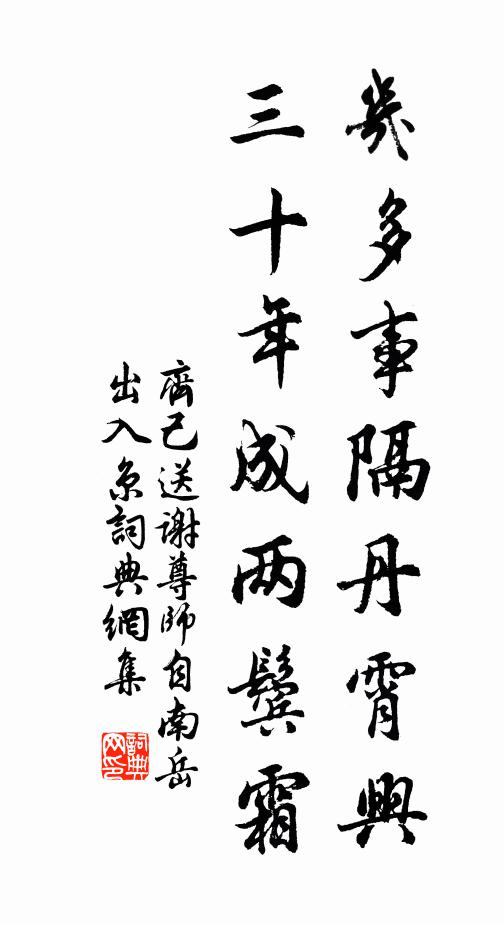 幾多事隔丹霄興
三十年成两鬓霜
齊己送謝尊師自南岳
出入京詞典網集
詞典
网印